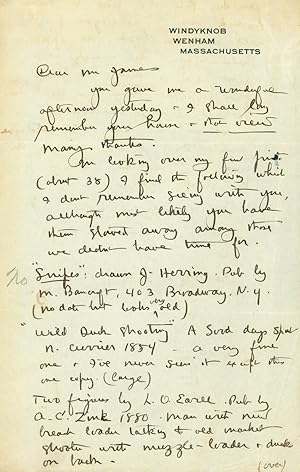 WINDYKNOB
WENHAM
MASSACHUSETTS
Dear Mr James
you gave me a wonderful
afternoon yesterday & I shall long
remember your house & that view
many thanks.
In looking over my few prints
(about 38) I find the following which
I dont remember seeing with you,
although most likely you have
them stowed away among those
we didnt have time for.
No "Snipes": drawn J. Herring. Pub by
M. Bancroft, 403 Broadway, N.Y.
(no date but looks very old)
"Wild Duck Shooting" A Good days Sport
N. Currier 1854 - a very fine
one & I've never seen it except this
one copy. (Large)
Two figures by L. O. Earle. Pub by
A. C. Zink 1880. Man with new
breech loader talking to old market
shooter with muzzle-loader & ducks
on back.
(over)